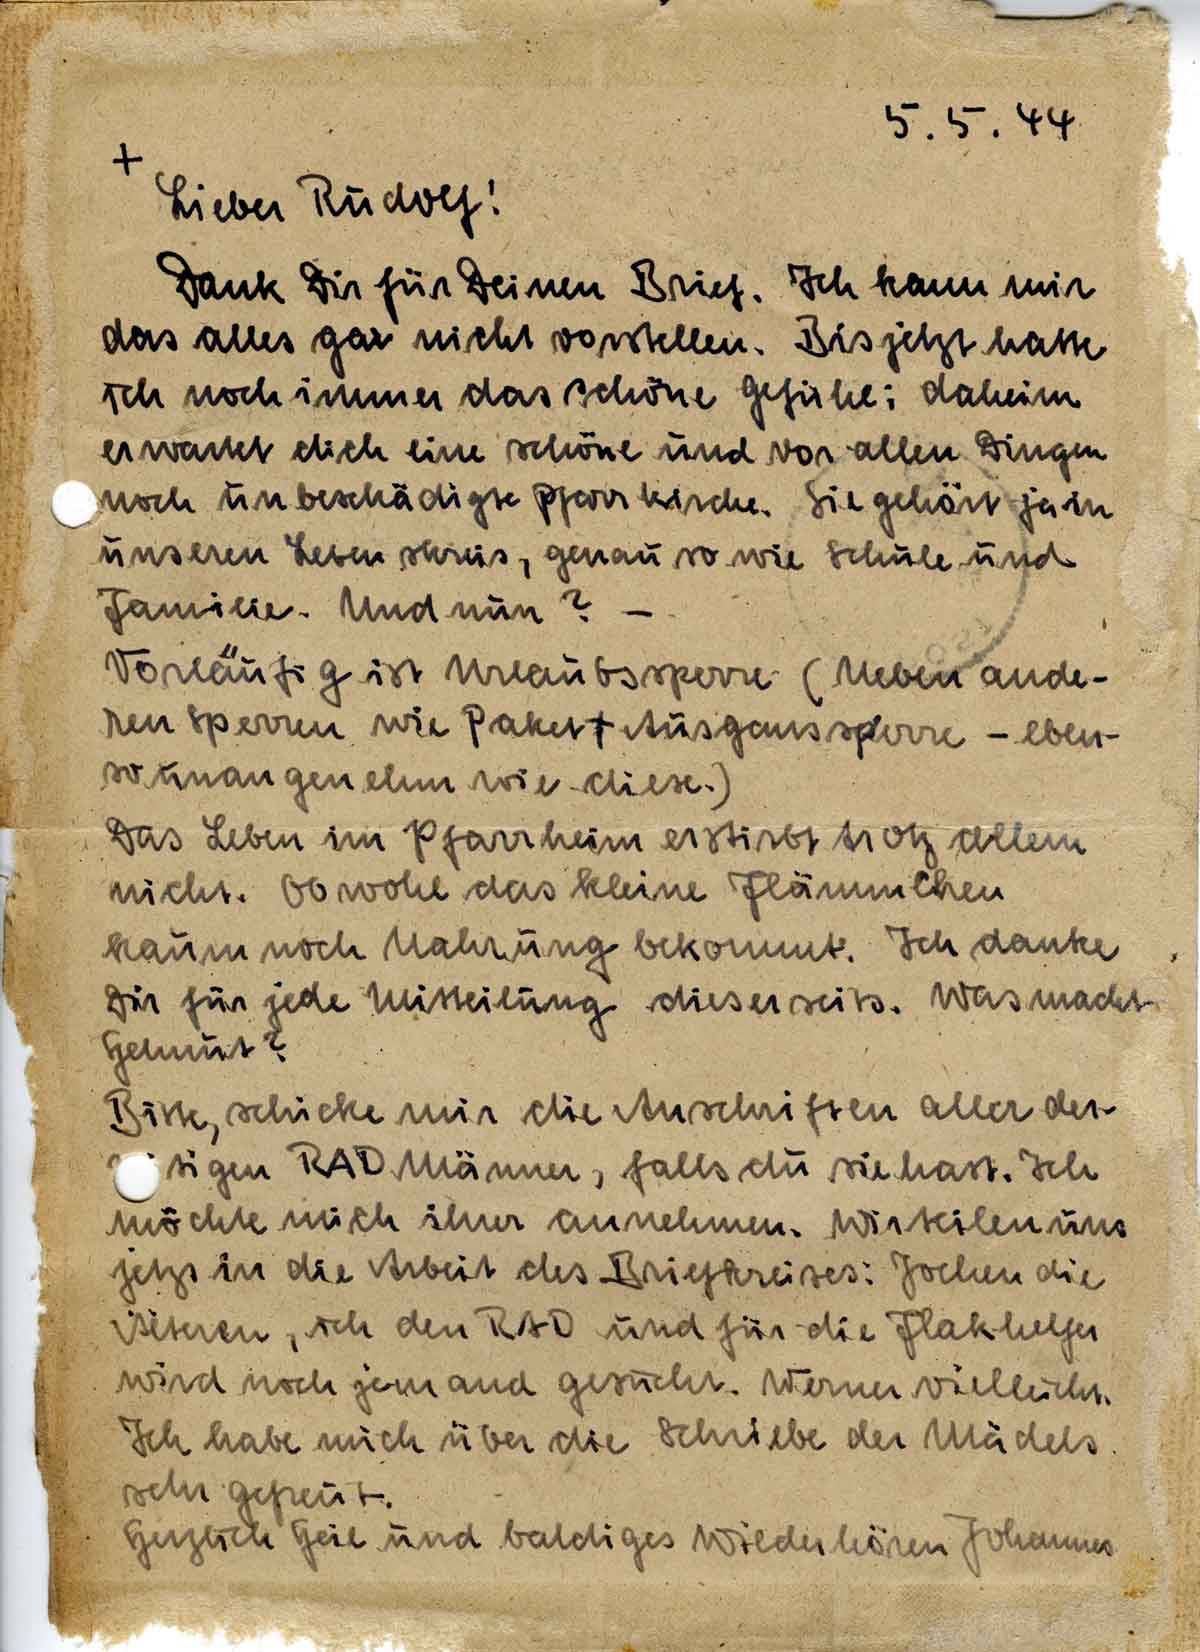 5.5.44
+
Lieber Rudolf!
Dank Dir für Deinen Brief. Ich kann mir
das alles gar nicht vorstellen. Bis jetzt hatte
ich noch immer das schöne Gefühl: daheim
erwartet dich eine schöne und vor allen Dingen
noch unbeschädigte Pfarrkirche. Sie gehört ja in
unseren Lebenskreis, genau so wie Schule und
Familie. Und nun? —
Vorläufig ist Urlaubssperre (Neben ande-
ren Sperren wie Paket + Ausganssperre - eben-
so unangenehm wie diese.)
Das Leben im Pfarrheim erstirbt trotz allem
nicht. Obwohl das kleine Flämmchen
kaum noch Nahrung bekommt. Ich danke
Dir für jede Mitteilung dieserseits. Was macht
Helmut?
Bitte, schicke mir die Anschriften aller der-
tigen RAD Männer, falls du sie hast. Ich
möchte mich ihrer annehmen. Wir teilen uns
jetzt in die Arbeit des Briefkreises: Jochen die
Älteren, ich den RAD und für die Flakhelfer
wird noch jemand gesucht. Werner vielleicht.
Ich habe mich über die Schriebe der Mädels
sehr gefreut.
Herzlich Heil und baldiges Wiederhören Johannes